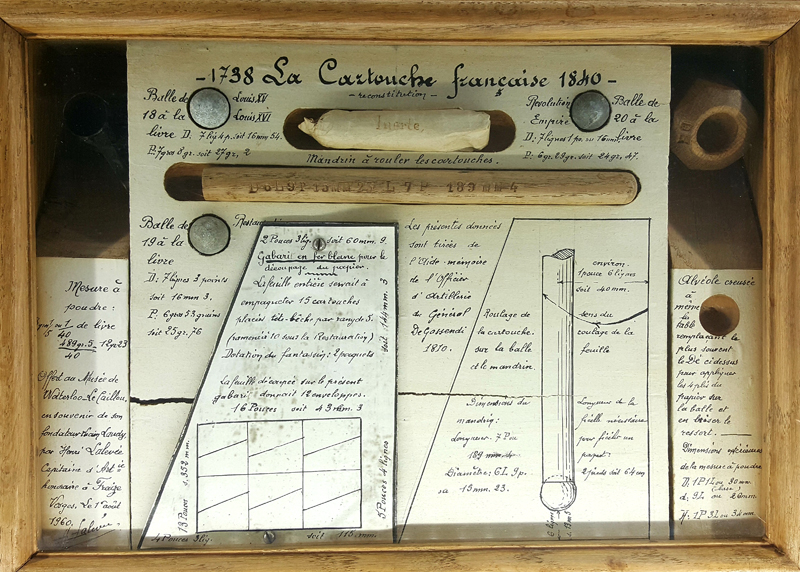 -1738 La Cartouche française 1840-
- reconstitution -
Balle de Louis XV
18 à la Louis XVI
livre D: 7lig 4p. soit 16mm 54.
P: 7gros 8gr. soit 27gr, 2
Inerte
Révolution Balle de
Empire 20 à la
D: 7lignes 1po. ou 16mm livre
P: 6gr. 29gr. soit 24gr, 47.
Mandrin à rouler les cartouches.
D 6L 9P 15mm 23 L 7P 189mm 4
Balle de
19 à la
livre
D: 7lignes 3 points
soit 16mm 3.
P: 6gros 53grains
soit 25gr, 76
2 Pouces 3lig. soit 60mm. 9.
Gabari en fer blanc pour le
découpage du papier.
La feuille entière servait à
empaqueter 15 cartouches
placées tête-bêche par rangs de 5.
(ramenés à 10 sous la Restauration)
Dotation du fantassin: 2 paquets
La feuille découpée sur le présent
gabari donnait 12 enveloppes.
16 Pouces soit 43mm. 3
soit 144mm. 3
5 Pouces 4 lignes
13 Pouces
4 Pouces 3lig. soit 115mm.
Les présentes données
sont tirées de
l'Aide-mémoire
de l'Officier
d'Artillerie
du Général
De Gassendi
1810.
environ
1 pouce 6 lignes
soit 40mm.
Roulage de
la cartouche
sur la balle
et le mandrin.
sens du
roulage de la
feuille
Dimensions du
mandrin:
Longueur: 7 Po
189 mm
Diamètre: 6L. 9p.
15mm. 23.
Longueur de la
ficelle nécessaire
pour ficeler un
paquet:
2 pieds soit 64cm
Mesure à
poudre:
1/40 de livre
489gr.5 12gr23
40
Offert au Musée de
Waterloo Le Caillou,
en souvenir de son
fondateur
par Henri Lalevée
Capitaine d'Artie
honoraire à Fraize
Vosges. Le 1er août
1960.
Lalevée
Alvéole creusée
à
même
la
remplaçant le
plus souvent
le Dé ci dessus
pour appliquer
les 4 plis du
papier sur
la balle et
en baisser le
ressort.
Dimensions intérieures
de la mesure à poudre
D: 1P 1L ou 30mm
d: 9L ou 20mm.
H: 1P 3L ou 34mm.